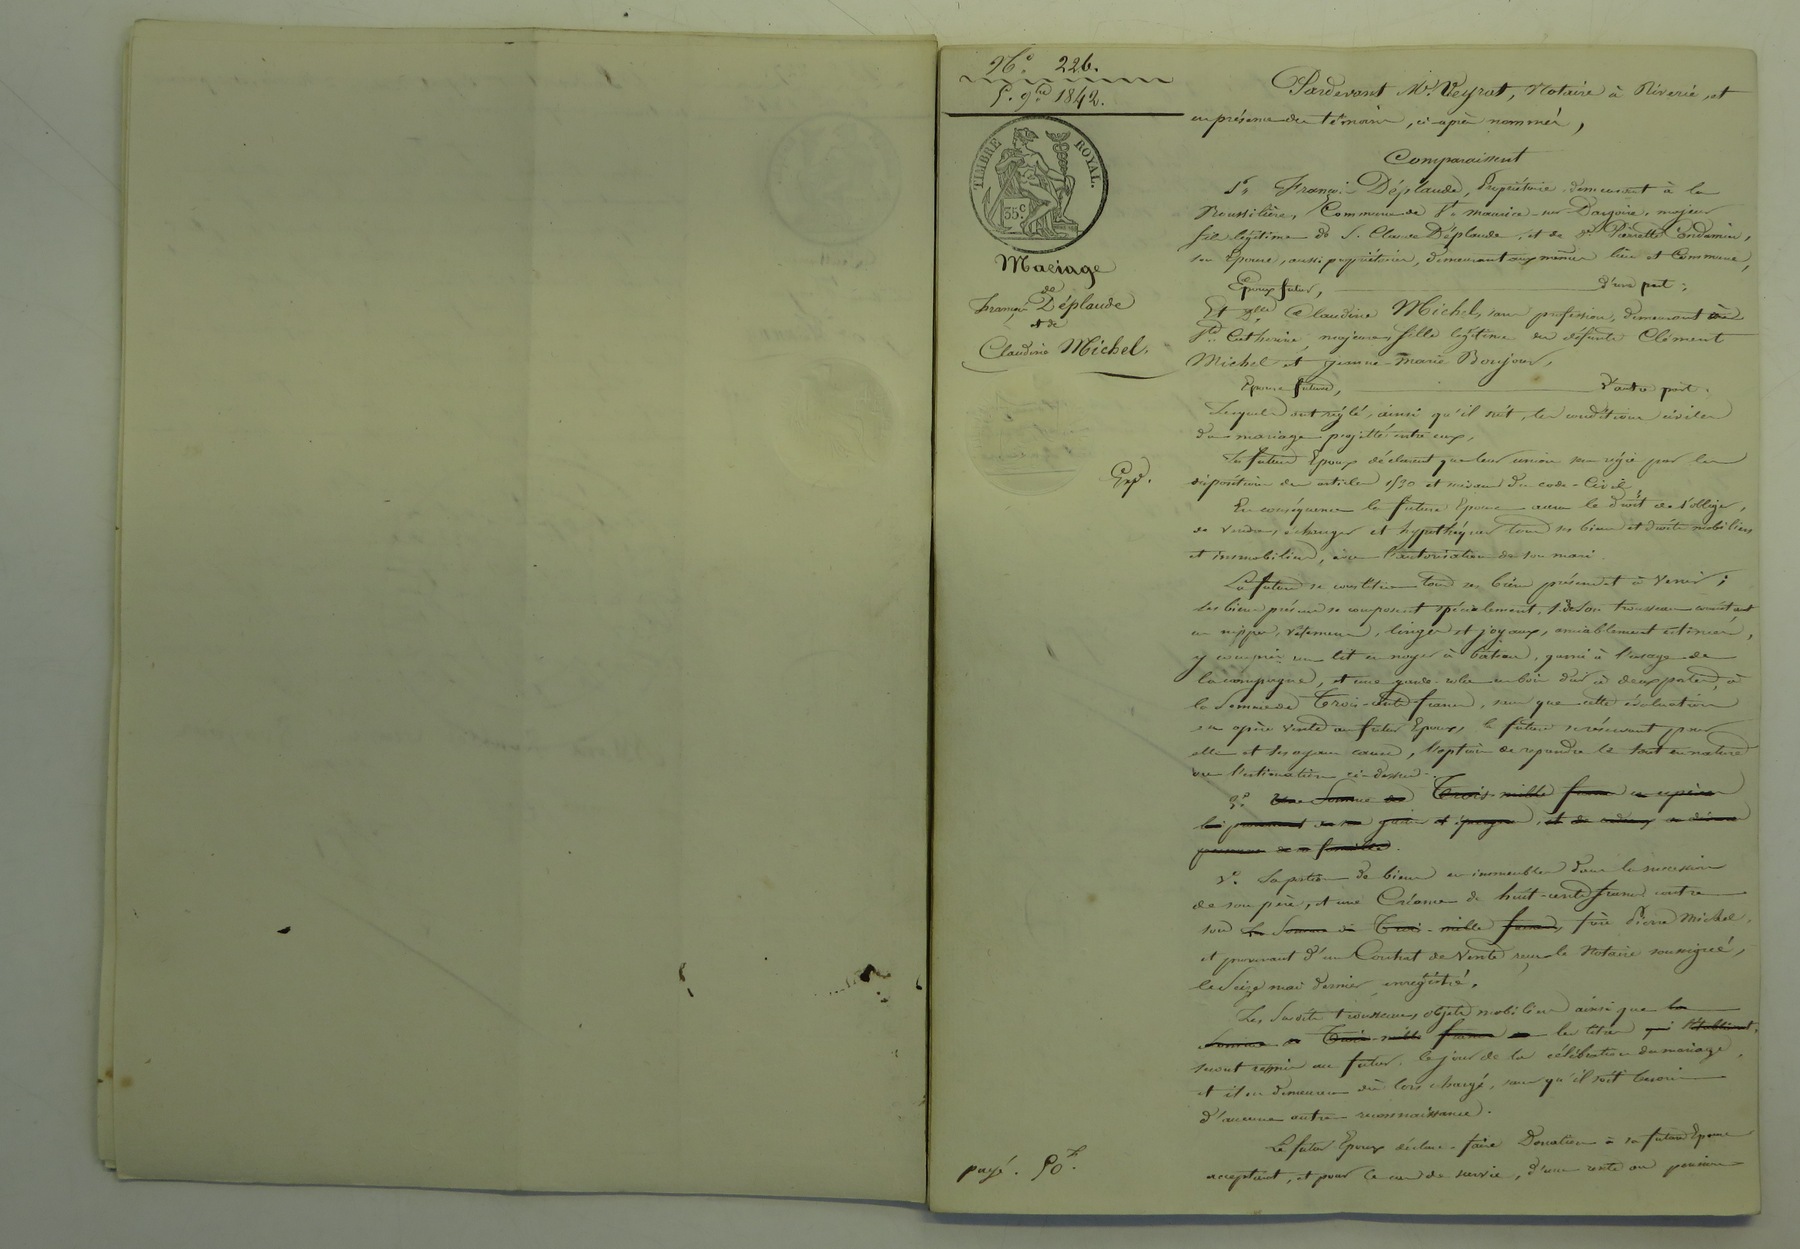 N.o 226.
5. 9bre 1842.
TIMBRE ROYAL.
35 c
Mariage
de
François Déplaude
et de
Claudine Michel.
Exp.
payé. 50 f.
Pardevant Me. Veyrat, Notaire à Riverie, et
en présence des témoins, ci-après nommés,
Comparaissent
Sr. François Déplaude, Propriétaire, demeurant à la
Roussilière, Commune de St. maurice-sur-Dargoire, majeur
fils légitime de S. Claude Déplaude, et de De. Pierrette Condamin,
son Epouse, aussi propriétaires, demeurant aux mêmes lieu et Commune,
Epoux futur, d'une part;
Et Dlle Claudine Michel, sans profession, demeurant à
Ste. Catherine, majeure, fille légitime des défunts Clément
Michel et Jeanne-Marie Bonjour,
Epouse future, d'autre part.
Lesquels ont réglé, ainsi qu'il suit, les conditions civiles
du mariage projetté entr'eux.
Les futurs Epoux déclarent que leur union sera régie par les
dispositions des articles 1530 et suivans du code-Civil.
En conséquence la future Epouse aura le droit de s'obliger,
de vendre, échanger et hypothéquer tous ses biens et droits mobiliers
et immobiliers, avec l'autorisation de son mari.
La future se constitue tous ses biens présens et à venir;
ses biens présens se composent spécialement, 1o. de son trousseau consistant
en nippes, vêtemens, linges et joyaux, amiablement estimés,
y compris un lit en noyer à bateau, garni à l'usage de
la campagne, et une garde-robe en bois dur à deux portes, à
la somme de Trois-cents francs, sans que cette évaluation
en opère vente au futur Epoux, la future se réservant pour
elle et les ayans cause, l'option de reprendre le tout en nature
ou l'estimation ci-dessus.
2o. Une Somme de Trois mille francs en espèces
et épargnes, et de cadeaux
famille.
2o. Sa portion de biens en immeubles dans la succession
de son père, et une Créance de huit-cents francs contre
son la Somme de Trois-mille francs, frère Pierre Michel,
et provenant d'un Contrat de vente reçu le Notaire soussigné,
le Seize mai dernier, enregistré.
Les susdits trousseau, objets mobiliers ainsi que la
Somme de Trois-mille francs les titres qui l'établissent,
seront remis au futur, le jour de la célébration du mariage,
et il en demeurera dès lors chargé, sans qu'il soit besoin
d'aucune autre reconnaissance.
Le futur Epoux déclare faire Donation à sa future Epouse
acceptant, et pour le cas de survie, d'une rente ou pension